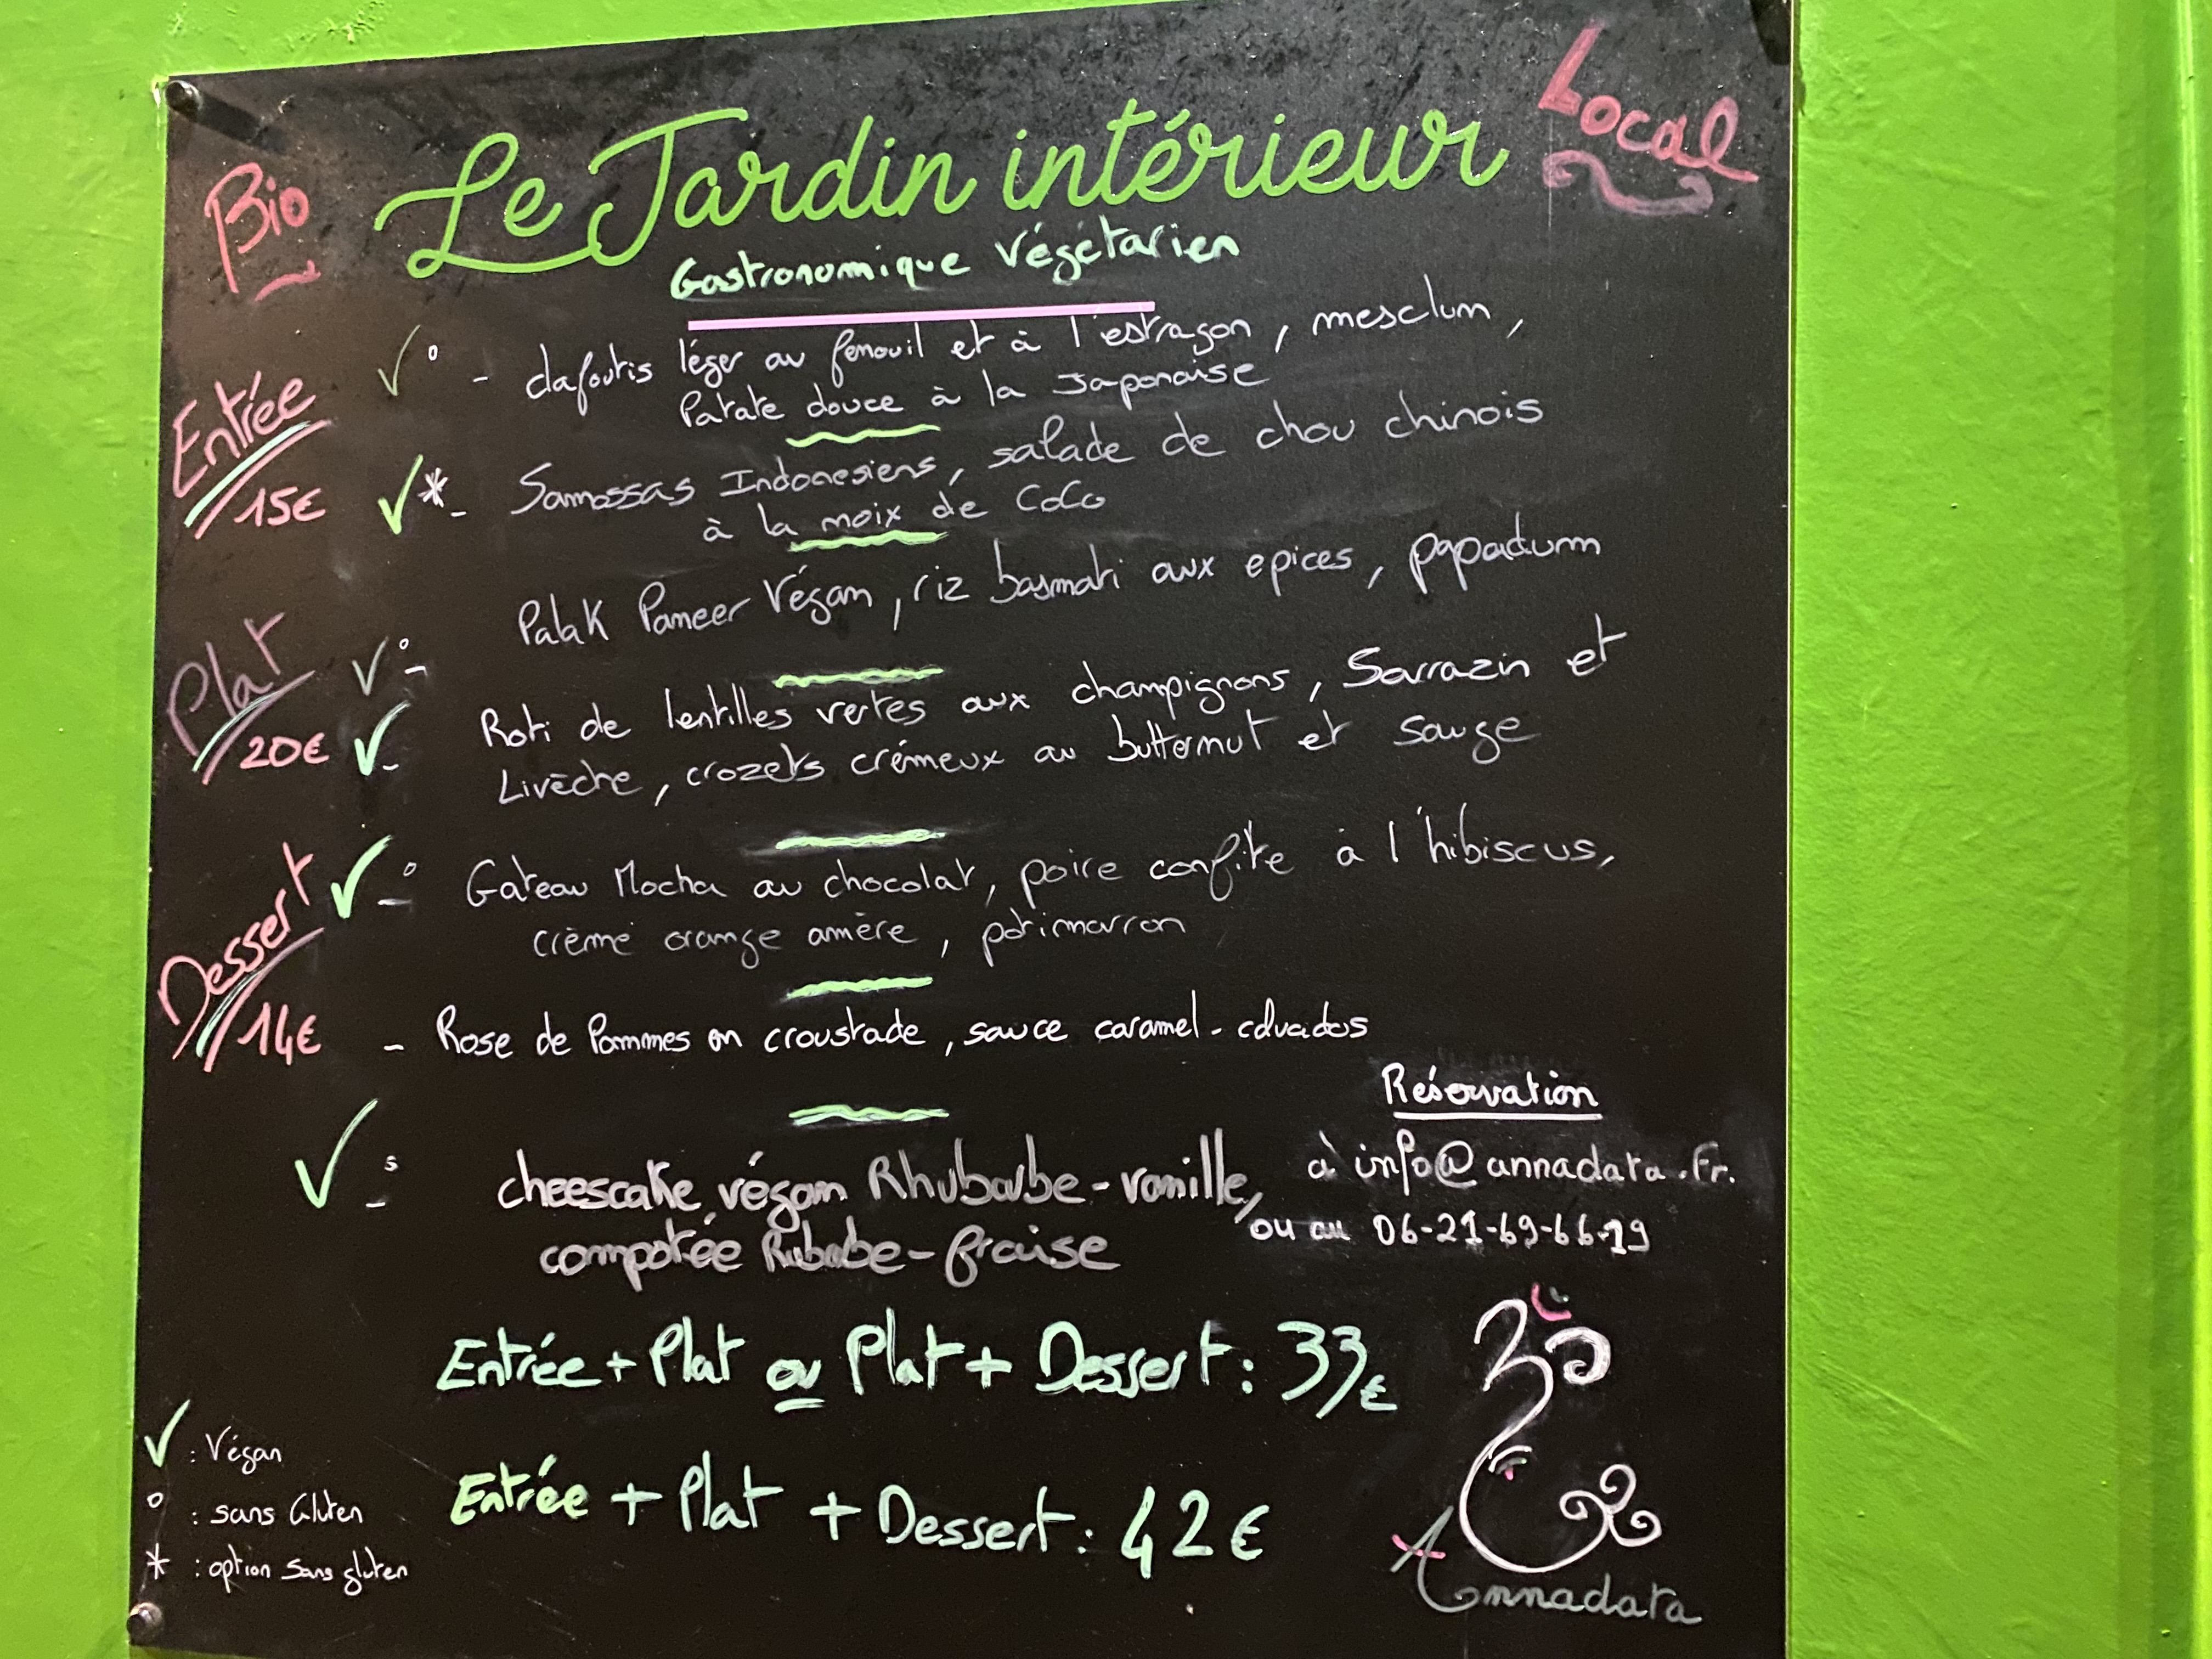 Bio
Le Jardin intérieur
Local
Gastronomique Végétarien
Entrée
15€
✓° - clafoutis léger au fenouil et à l'estragon, mesclum,
Patate douce à la Japonaise
✓*- Samossas Indonesiens, salade de chou chinois
à la moix de CoCo
Plat
20€
✓°- Palak Paneer Végan, riz basmati aux epices, papadum
✓- Roti de lentilles vertes aux champignons, Sarrazin et
Livèche, crozets crémeux au butternut et sauge
Dessert
14€
✓-° Gateau Mocha au chocolat, poire confite à l'hibiscus,
crème orange amère, potimarron
- Rose de Pommes en croustade, sauce caramel-calvados
✓- cheescake végan Rhubarbe-vanille,
compotée Rubabe-fraise
Réservation
à info@annadata.Fr.
ou au 06-21-69-66-19
Entrée + Plat ou Plat + Dessert: 33€
Entrée + Plat + Dessert: 42€
✓ : Végan
° : sans Gluten
* : option sans gluten
Annadata